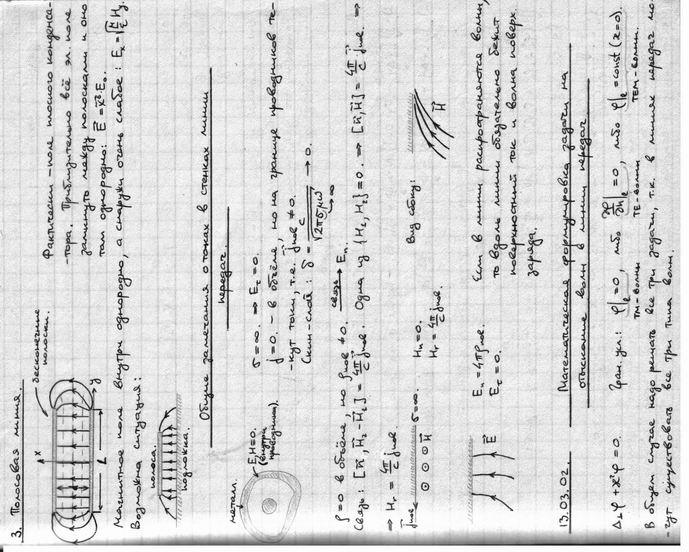 3. Полосовая линия.
бесконечные
полоски.
x
y
L
Фактически - поле плоского конденса-
-тора. Приблизительно всё эл. поле
замкнуто между полосками и оно
там однородно: E⃗ = x⃗° E₀.
Магнитное поле внутри однородно, а снаружи очень слабое: Eₓ = √(μ/ε) H_y.
Возможна ситуация:
полоса.
подложка.
Общие замечания о токах в стенках линии
передач.
металл.
E,H=0.
(внутри
проводника).
σ=∞. ⇒ E_τ=0.
j=0. - в объёме, но на границе проводников те-
-кут токи, т.е. j_пов ≠ 0.
Скин-слой: δ = c/√(2πσμω) → 0.
σ→∞
ρ=0 в объёме, но ρ_пов ≠ 0. связь → Eₙ.
Связь: [n⃗, H₂-H₁] = 4π/c j⃗_пов. Одна из {H₁, H₂}=0. ⇒ [n⃗, H⃗] = 4π/c j⃗_пов. ⇒
⇒ H_τ = 4π/c j_пов
Hₙ=0.
H_τ = 4π/c j_пов.
Вид сбоку:
j_пов
σ=∞.
H⃗
H⃗
E⃗
Eₙ = 4πρ_пов.
E_τ=0.
Если в линии распространяются волны,
то вдоль линии обязательно бежит
поверхностный ток и волна поверх.
заряда.
13.03.02.
Математическая формулировка задачи на
отыскание волн в линии передач
Δ⊥φ + ϰ²φ = 0.
Гран. усл.: φ|_ℓ=0, либо ∂φ/∂n|_ℓ=0, либо φ|_ℓ=const (ϰ=0).
TM-волны
TE-волны
TEM-волны.
В общем случае надо решать все три задачи, т.к. в линиях передач мо-
-гут существовать все три типа волн.